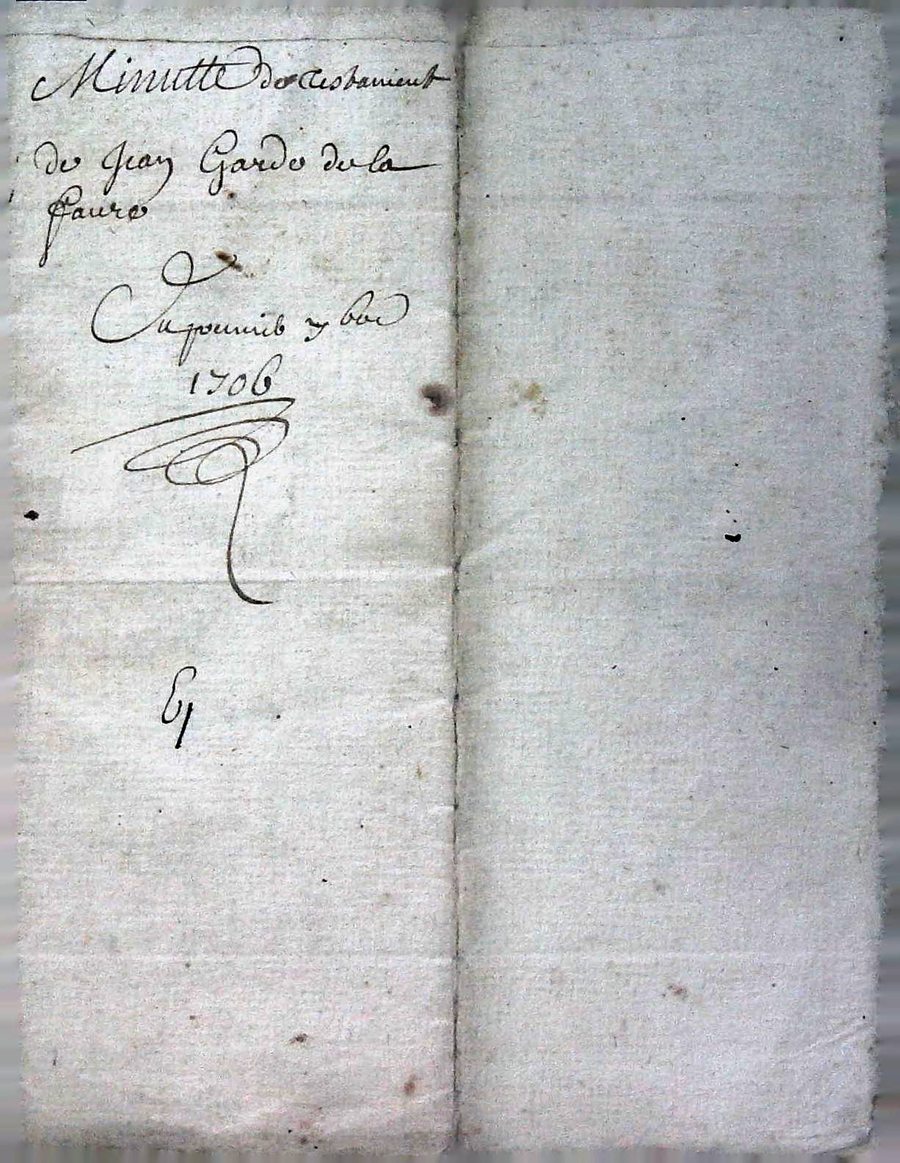 Minutte de testament
de Jean Garde de la
faure
Du premier 7 bre
1706